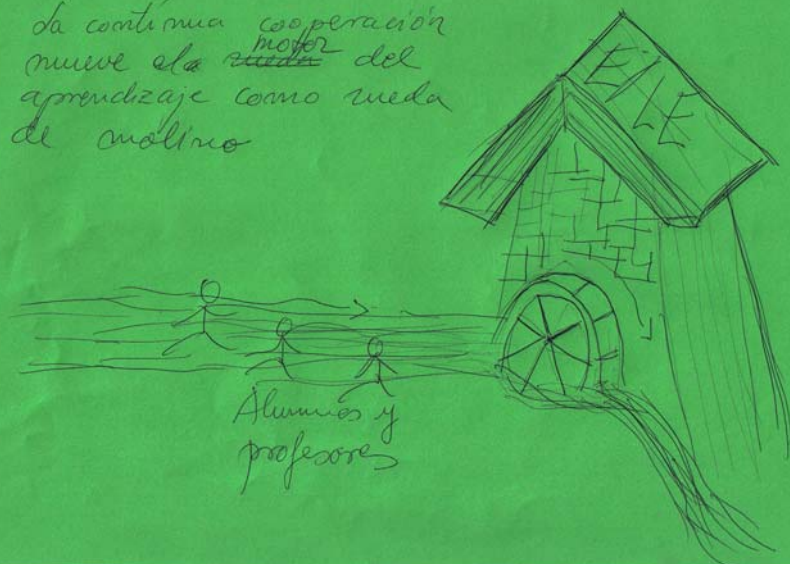 La continua cooperación
mueve el motor del
aprendizaje como rueda
de molino
ELE
Alumnos y
profesores